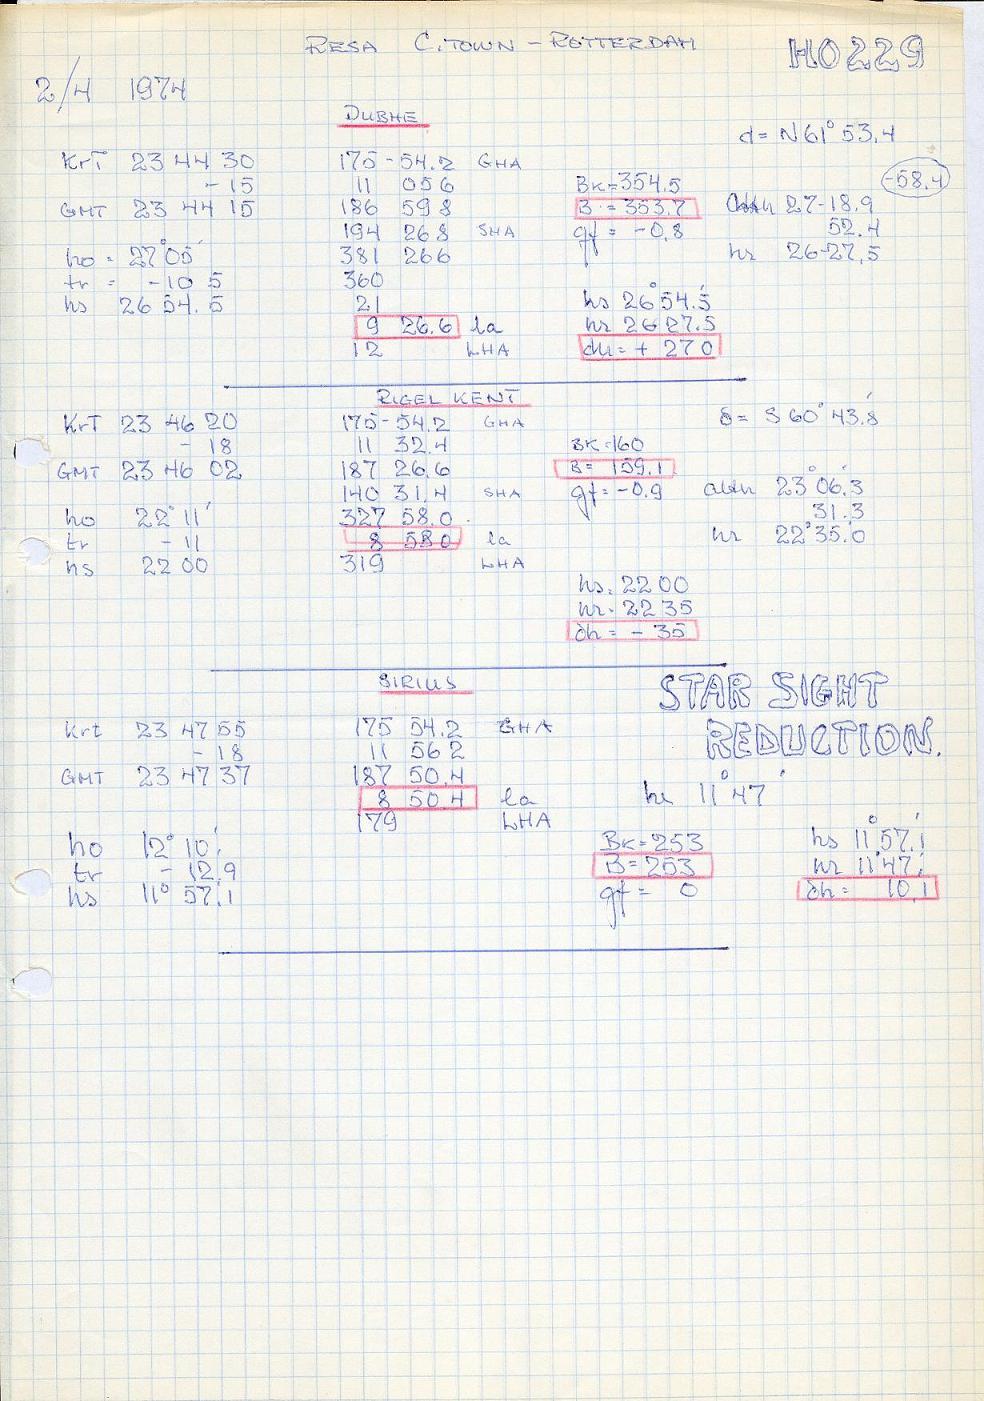 RESA C.TOWN - ROTTERDAM
HO229
2/4 1974
DUBHE
d = N 61° 53.4
-58.4
KrT 23 44 30
- 15
GMT 23 44 15
ho = 27° 05'
tr = -10 5
hs 26 54.5
175-54.2 GHA
11 056
186 598
194 268 SHA
381 266
360
21
9 26.6 la
12 LHA
BK=354.5
B = 353.7
gf = -0.8
27-18.9
52.4
hr 26-27.5
hs 26° 54.5'
hr 26 27.5
dh = + 27 0
RIGEL KENT
δ = S 60° 43.8'
KrT 23 46 20
- 18
GMT 23 46 02
ho 22° 11'
tr - 11
hs 22 00
175-54.2 GHA
11 32.4
187 26.6
140 31.4 SHA
327 58.0
8 58.0 la
319 LHA
BK=160
B= 159.1
gf=-0.9
23° 06.3'
31.3
hr 22° 35.0
hs. 22 00
hr. 22 35
dh = - 35
SIRIUS
STAR SIGHT
REDUCTION.
Krt 23 47 55
- 18
GMT 23 47 37
ho 12° 10'
tr - 12.9
hs 11° 57.1
175 54.2 GHA
11 56 2
187 50.4
8 50.4 la
179 LHA
hr 11° 47'
BK=253
B=253
gf = 0
hs 11° 57.1'
hr 11° 47'
dh = 10.1